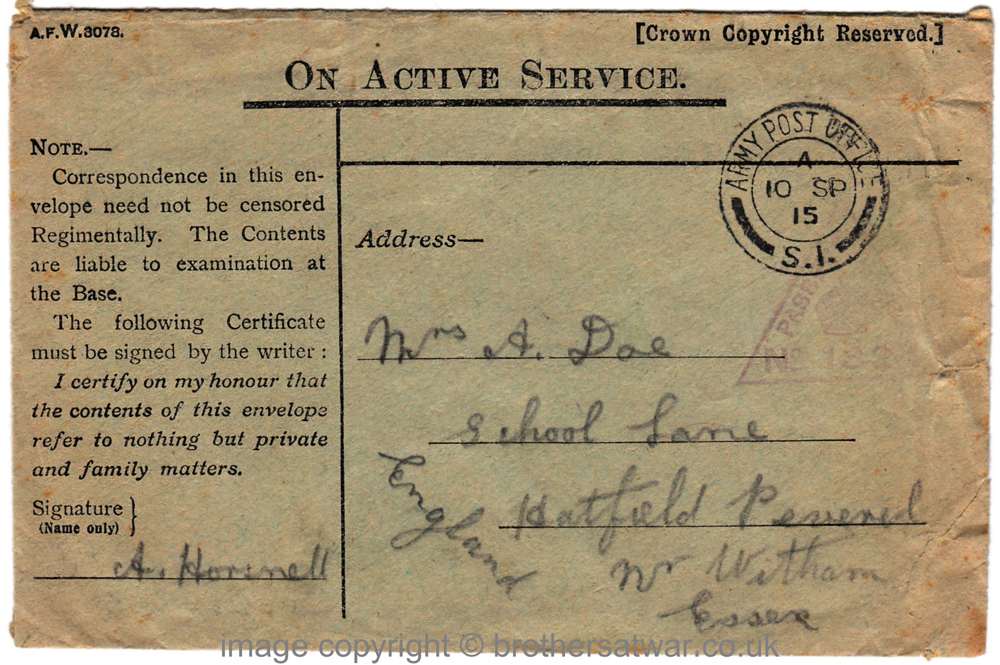 A.F.W.3078.
[Crown Copyright Reserved.]
ON ACTIVE SERVICE.
NOTE.—
Correspondence in this en-
velope need not be censored
Regimentally. The Contents
are liable to examination at
the Base.
The following Certificate
must be signed by the writer :
I certify on my honour that
the contents of this envelope
refer to nothing but private
and family matters.
Signature }
(Name only)
A. Horsnell
ARMY POST OFFICE
A
10 SP
15
S.1.
Address—
Mrs A. Doe
School Lane
Hatfield Peverel
Nr Witham
Essex
England
image copyright © brothersatwar.co.uk